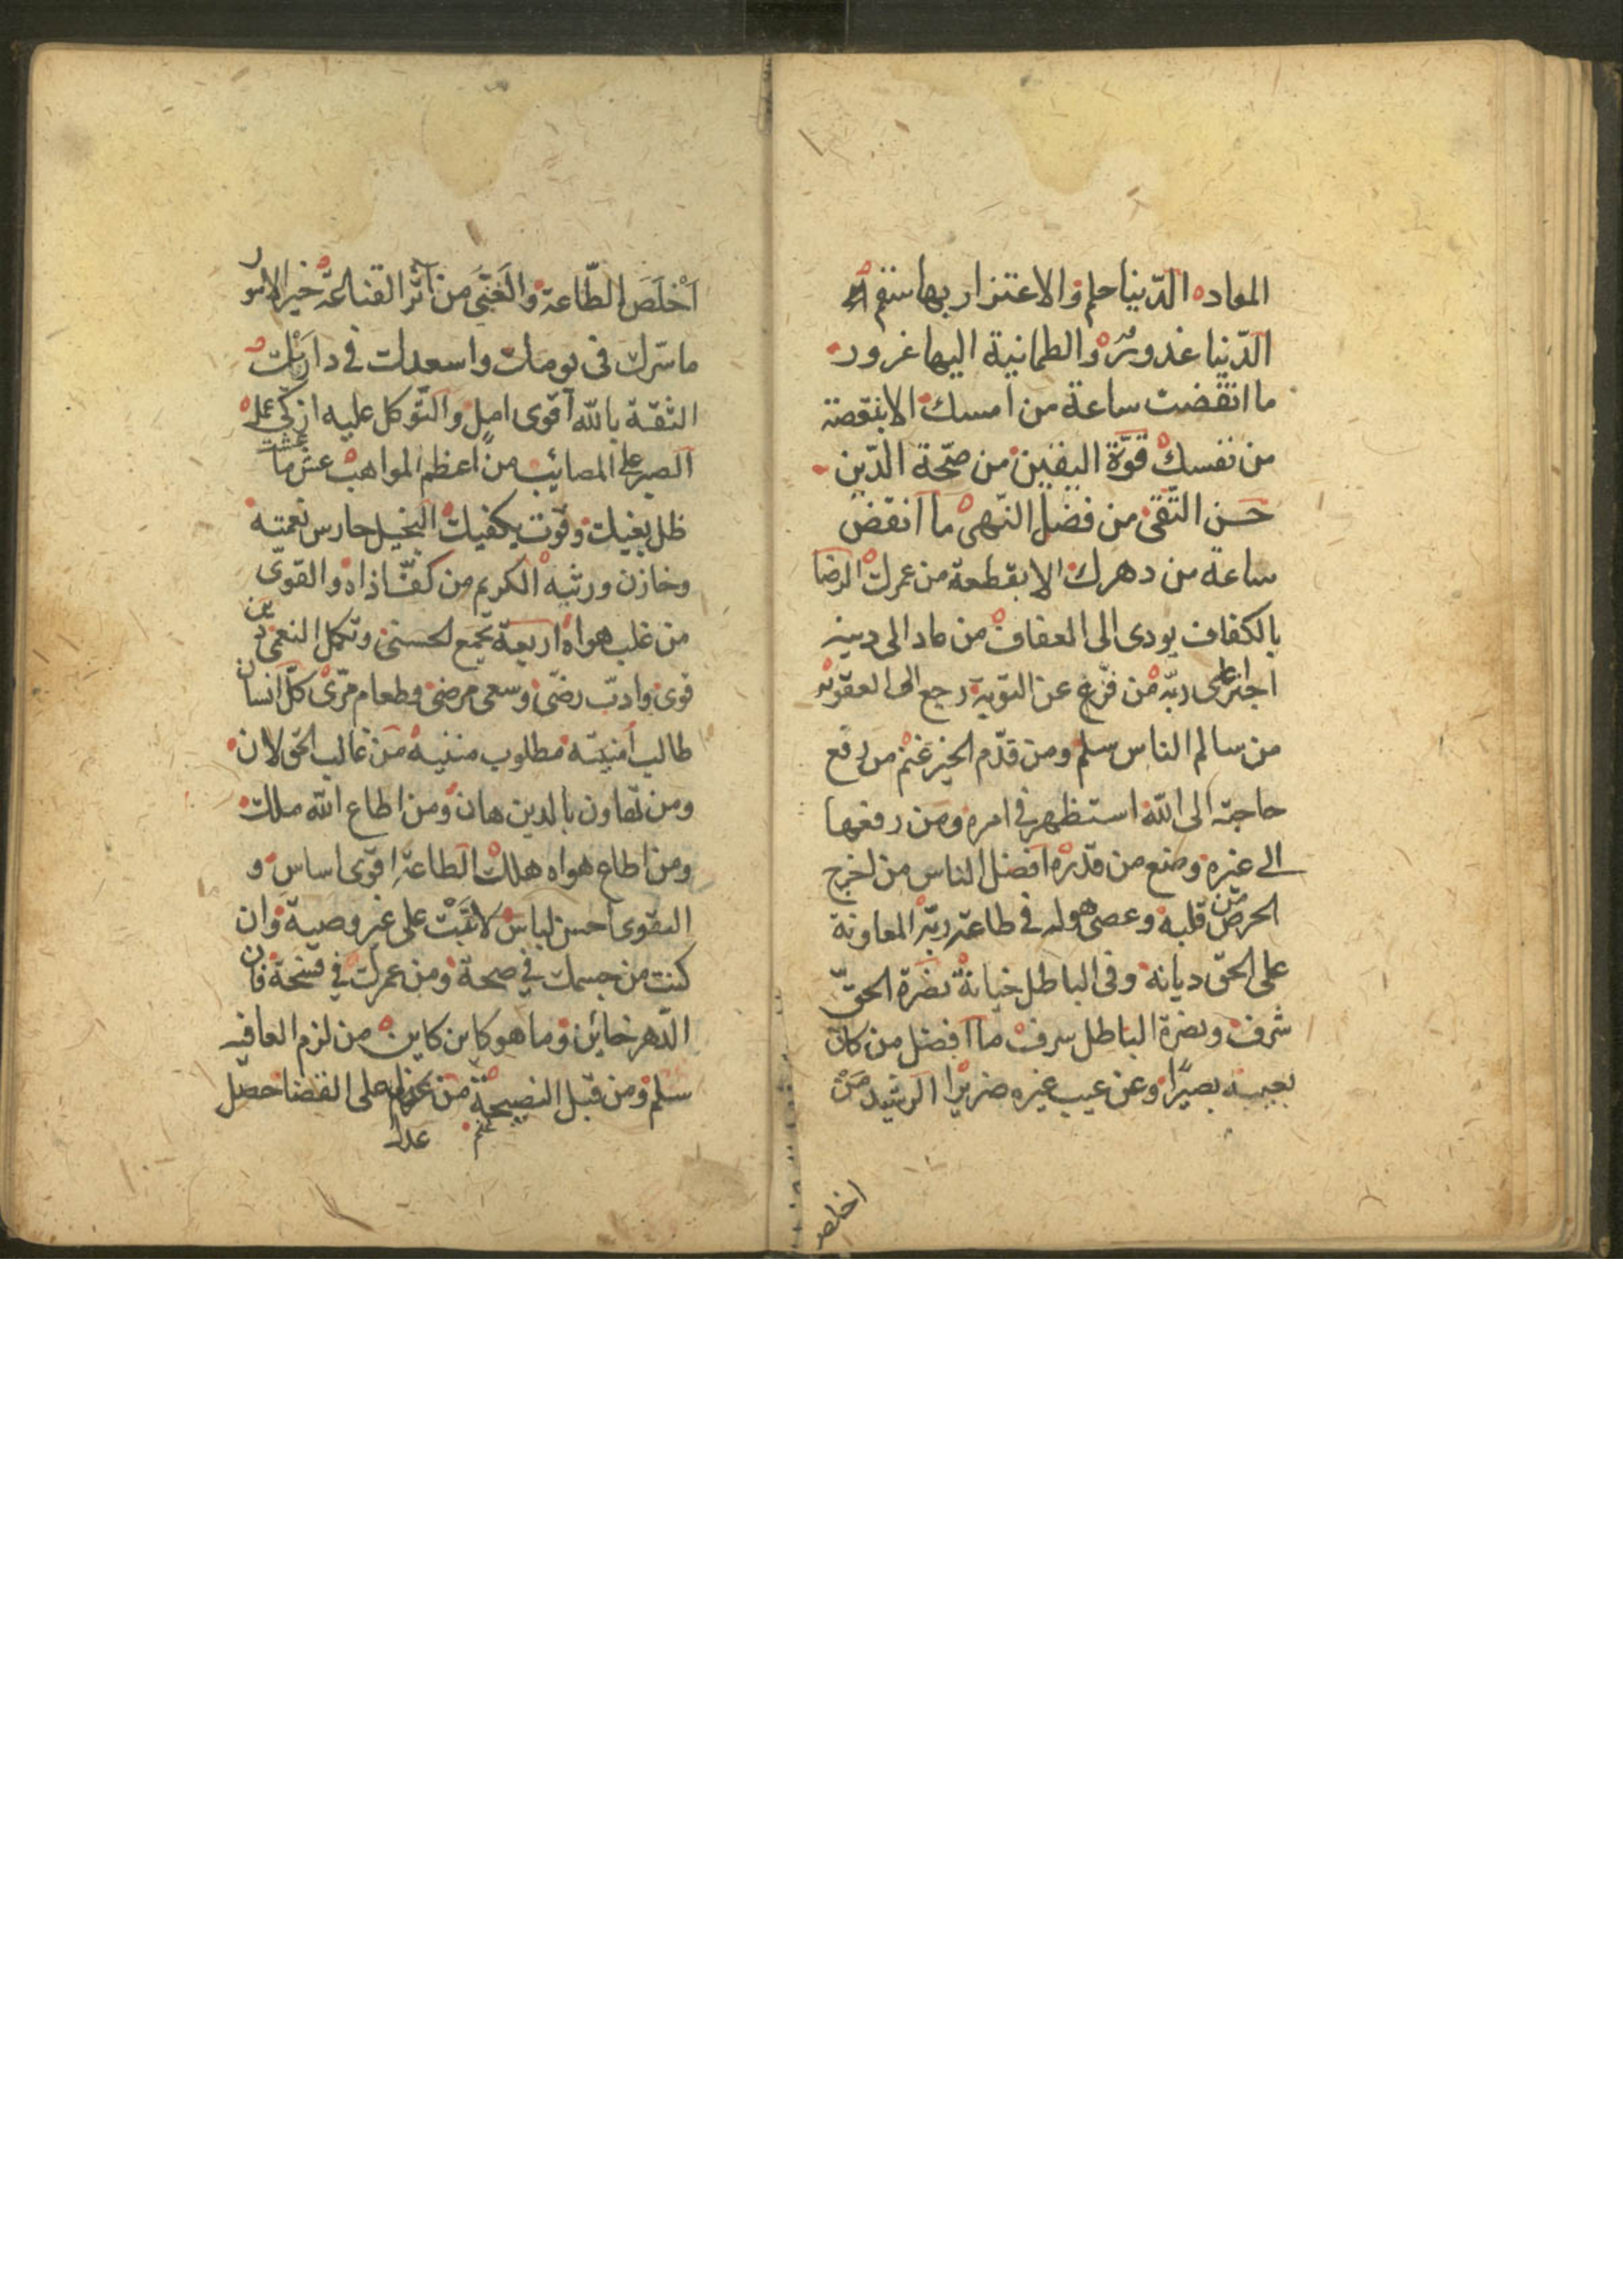 المعاد الدّنيا حلم والاعتزار بها سقم
الدّنيا غدور والطمانية اليها غرور
ما انقضت ساعة من امسك الا بنقصة
من نفسك قوّة اليقين من صحّة الدّين
حسن التّقى من فضل النّهى ما انقض
ساعة من دهرك الا بقطعة من عمرك الرضا
بالكفاف يودى الى العفاف من عاد الى دينه
اجترٔ على ربّه من فرّغ عن التوبة رجع الى العقوبة
من سالم الناس سلم ومن قدّم الخير غنم من رفع
حاجته الى اللّه استظهر فى امره ومن رفعها
الى غيره وضع من قدره افضل الناس من اخرج
الحرص من قلبه وعصى هواه فى طاعة ربّه المعاونة
على الحقّ ديانة وفى الباطل خيانة نضرة الحقّ
شرف ونضرة الباطل سرف ما افضل من كان
بعيبه بصيرًا وعن عيب غيره ضريرا الرشيد من
اخلص
اَخْلَصَ الطّاعة والغَنِى مَن آثر القناعة خير الامور
ما سّرك فى يومك واسعدك فى داريك
الثقة باللّه اقوى امل والتّوكل عليه ازكى عمل
الصبر على المصائب من اعظم المواهب عش ما عشت
ظل يغيك وقوت يكفيك البخيل حارس نعمته
وخازن ورثيه الكريم من كفّ اذاه والقوىّ
من غلب هواه اربعة تجمع لحسنى وتكمل النعمى دين
قوى وادبّ رضىّ وسعى مرضى وطعام مرّى كلّ انسان
طالب اُمنيّته مطلوب منيته من غالب الحقّ لان
ومن تهاون بالدين هان ومن اطاع اللّه ملك
ومن اطاع هواه هلك الطاعة اقوى اساس و
التقوى احسن لباس لا تبت على غير وصية وان
كنت من جسمك فى صحة ومن عمرك فى فسحة فان
الدّهر خائن وما هو كاين كاين من لزم العافيه
سلم ومن قبل النصيحة غنم من على القضا حصّل